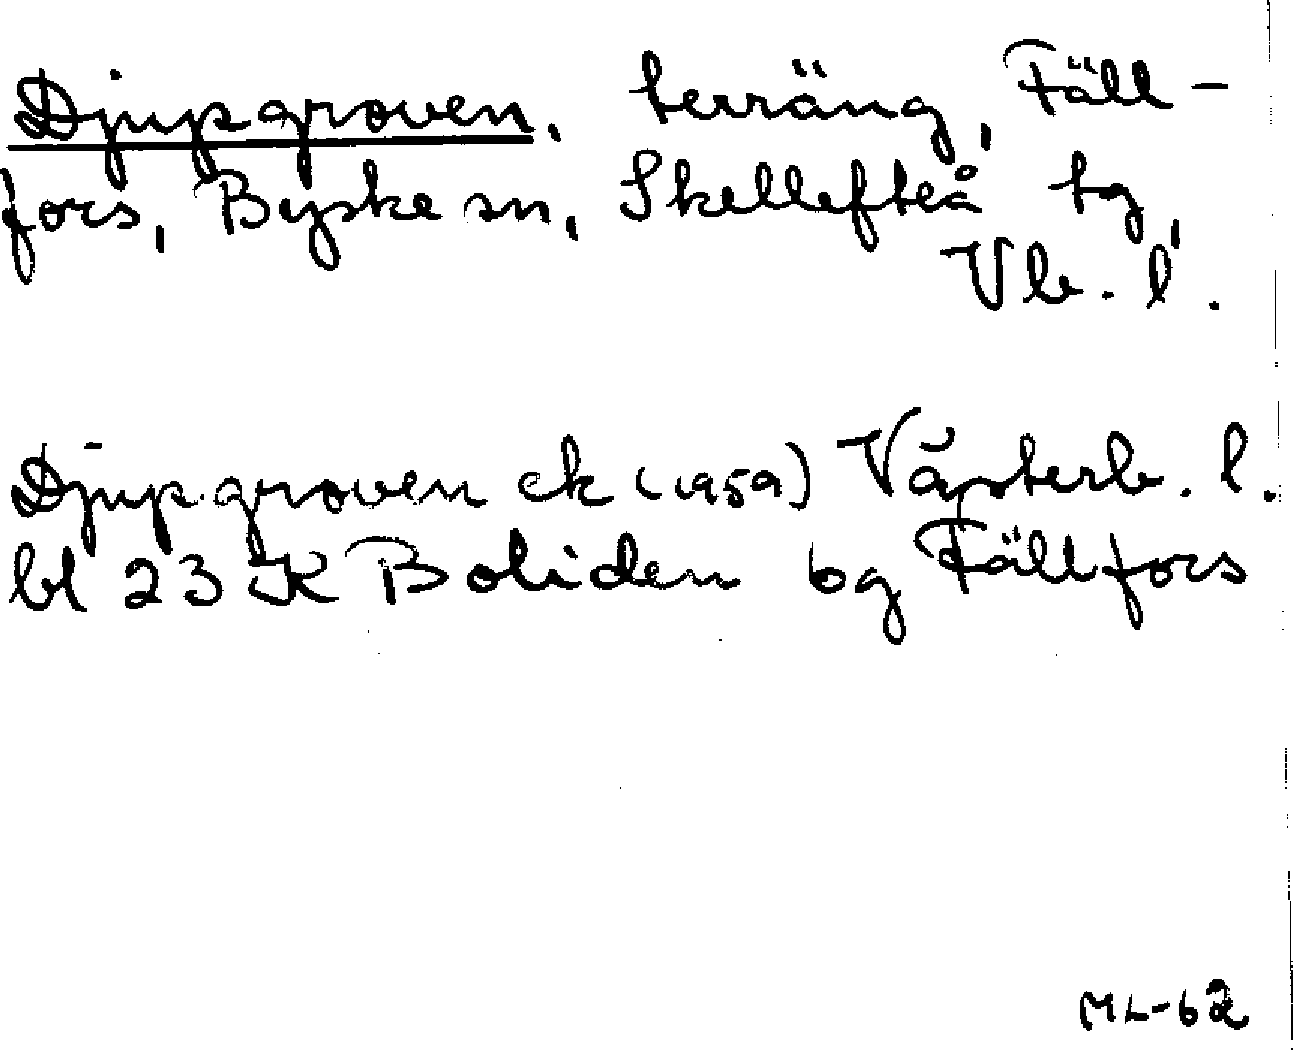 Djupgroven, terräng, Fäll-
fors, Byske sn, Skellefteå tg,
Vb. l.
Djupgroven ek (1959) Västerb. l.
bl 23 K Boliden bg Fällfors
ML-62